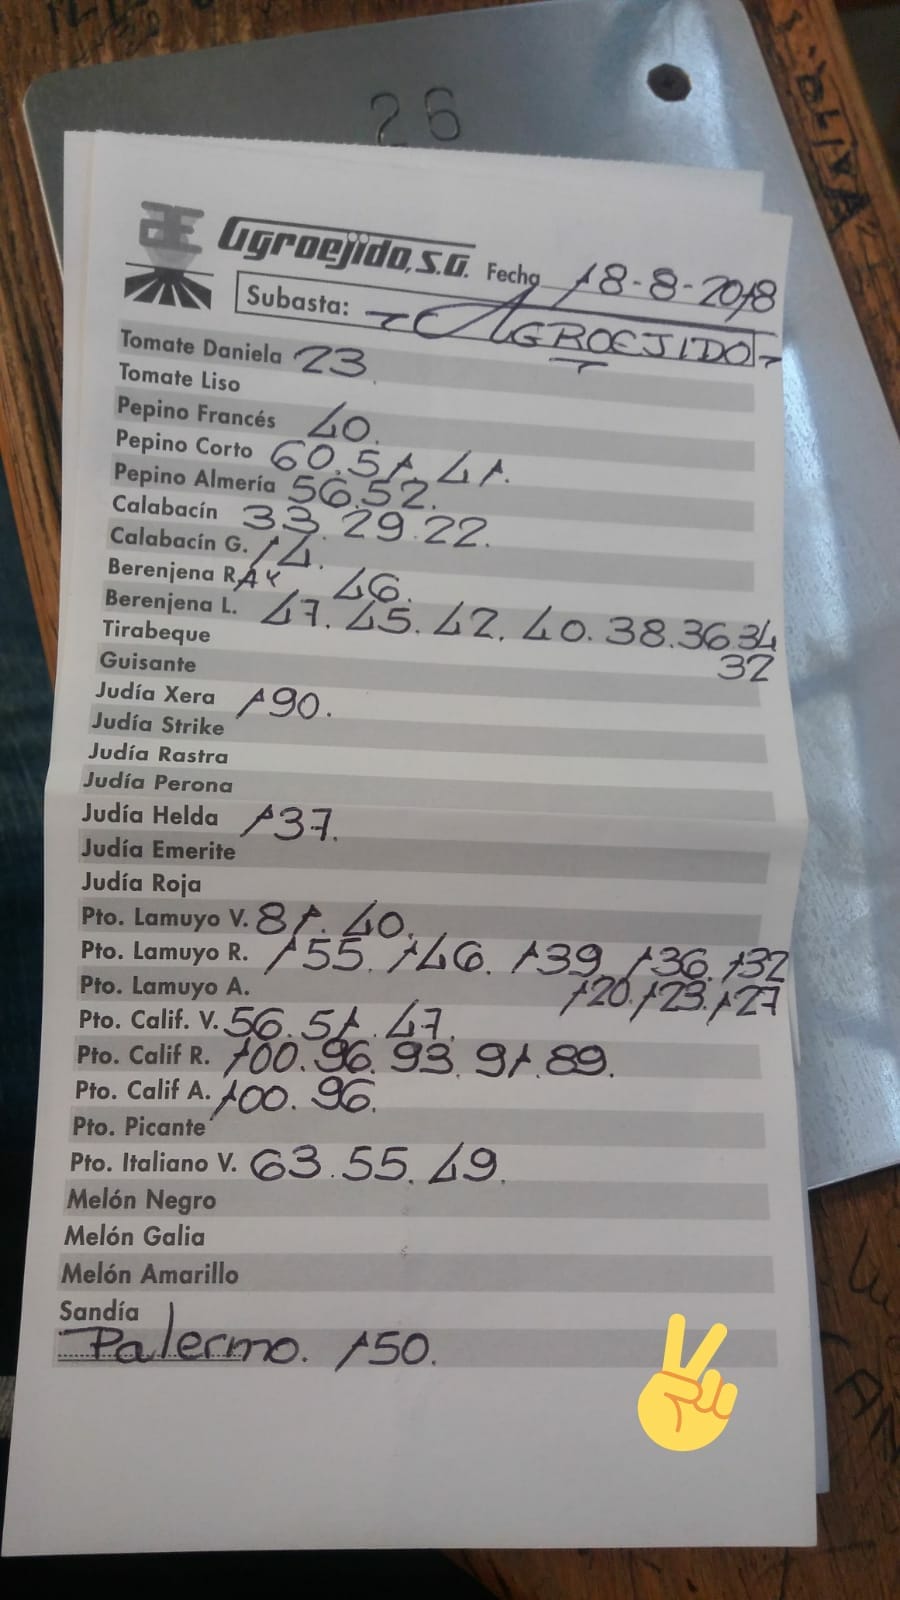 26
Agroejido, S.A. Fecha 18-8-2018
Subasta: AGROEJIDO
Tomate Daniela 23.
Tomate Liso
Pepino Francés 40.
Pepino Corto 60. 51. 41.
Pepino Almería 56. 52.
Calabacín 33. 29. 22.
Calabacín G. 14.
Berenjena RAY 46.
Berenjena L. 47. 45. 42. 40. 38. 36 34
32
Tirabeque
Guisante
Judía Xera 190.
Judía Strike
Judía Rastra
Judía Perona
Judía Helda 137.
Judía Emerite
Judía Roja
Pto. Lamuyo V. 81. 40.
Pto. Lamuyo R. 155. 146. 139 136. 132
Pto. Lamuyo A. 120. 123. 127
Pto. Calif. V. 56. 51. 47.
Pto. Calif R. 100. 96. 93. 91. 89.
Pto. Calif A. 100. 96.
Pto. Picante
Pto. Italiano V. 63. 55. 49.
Melón Negro
Melón Galia
Melón Amarillo
Sandía
Palermo. 150.